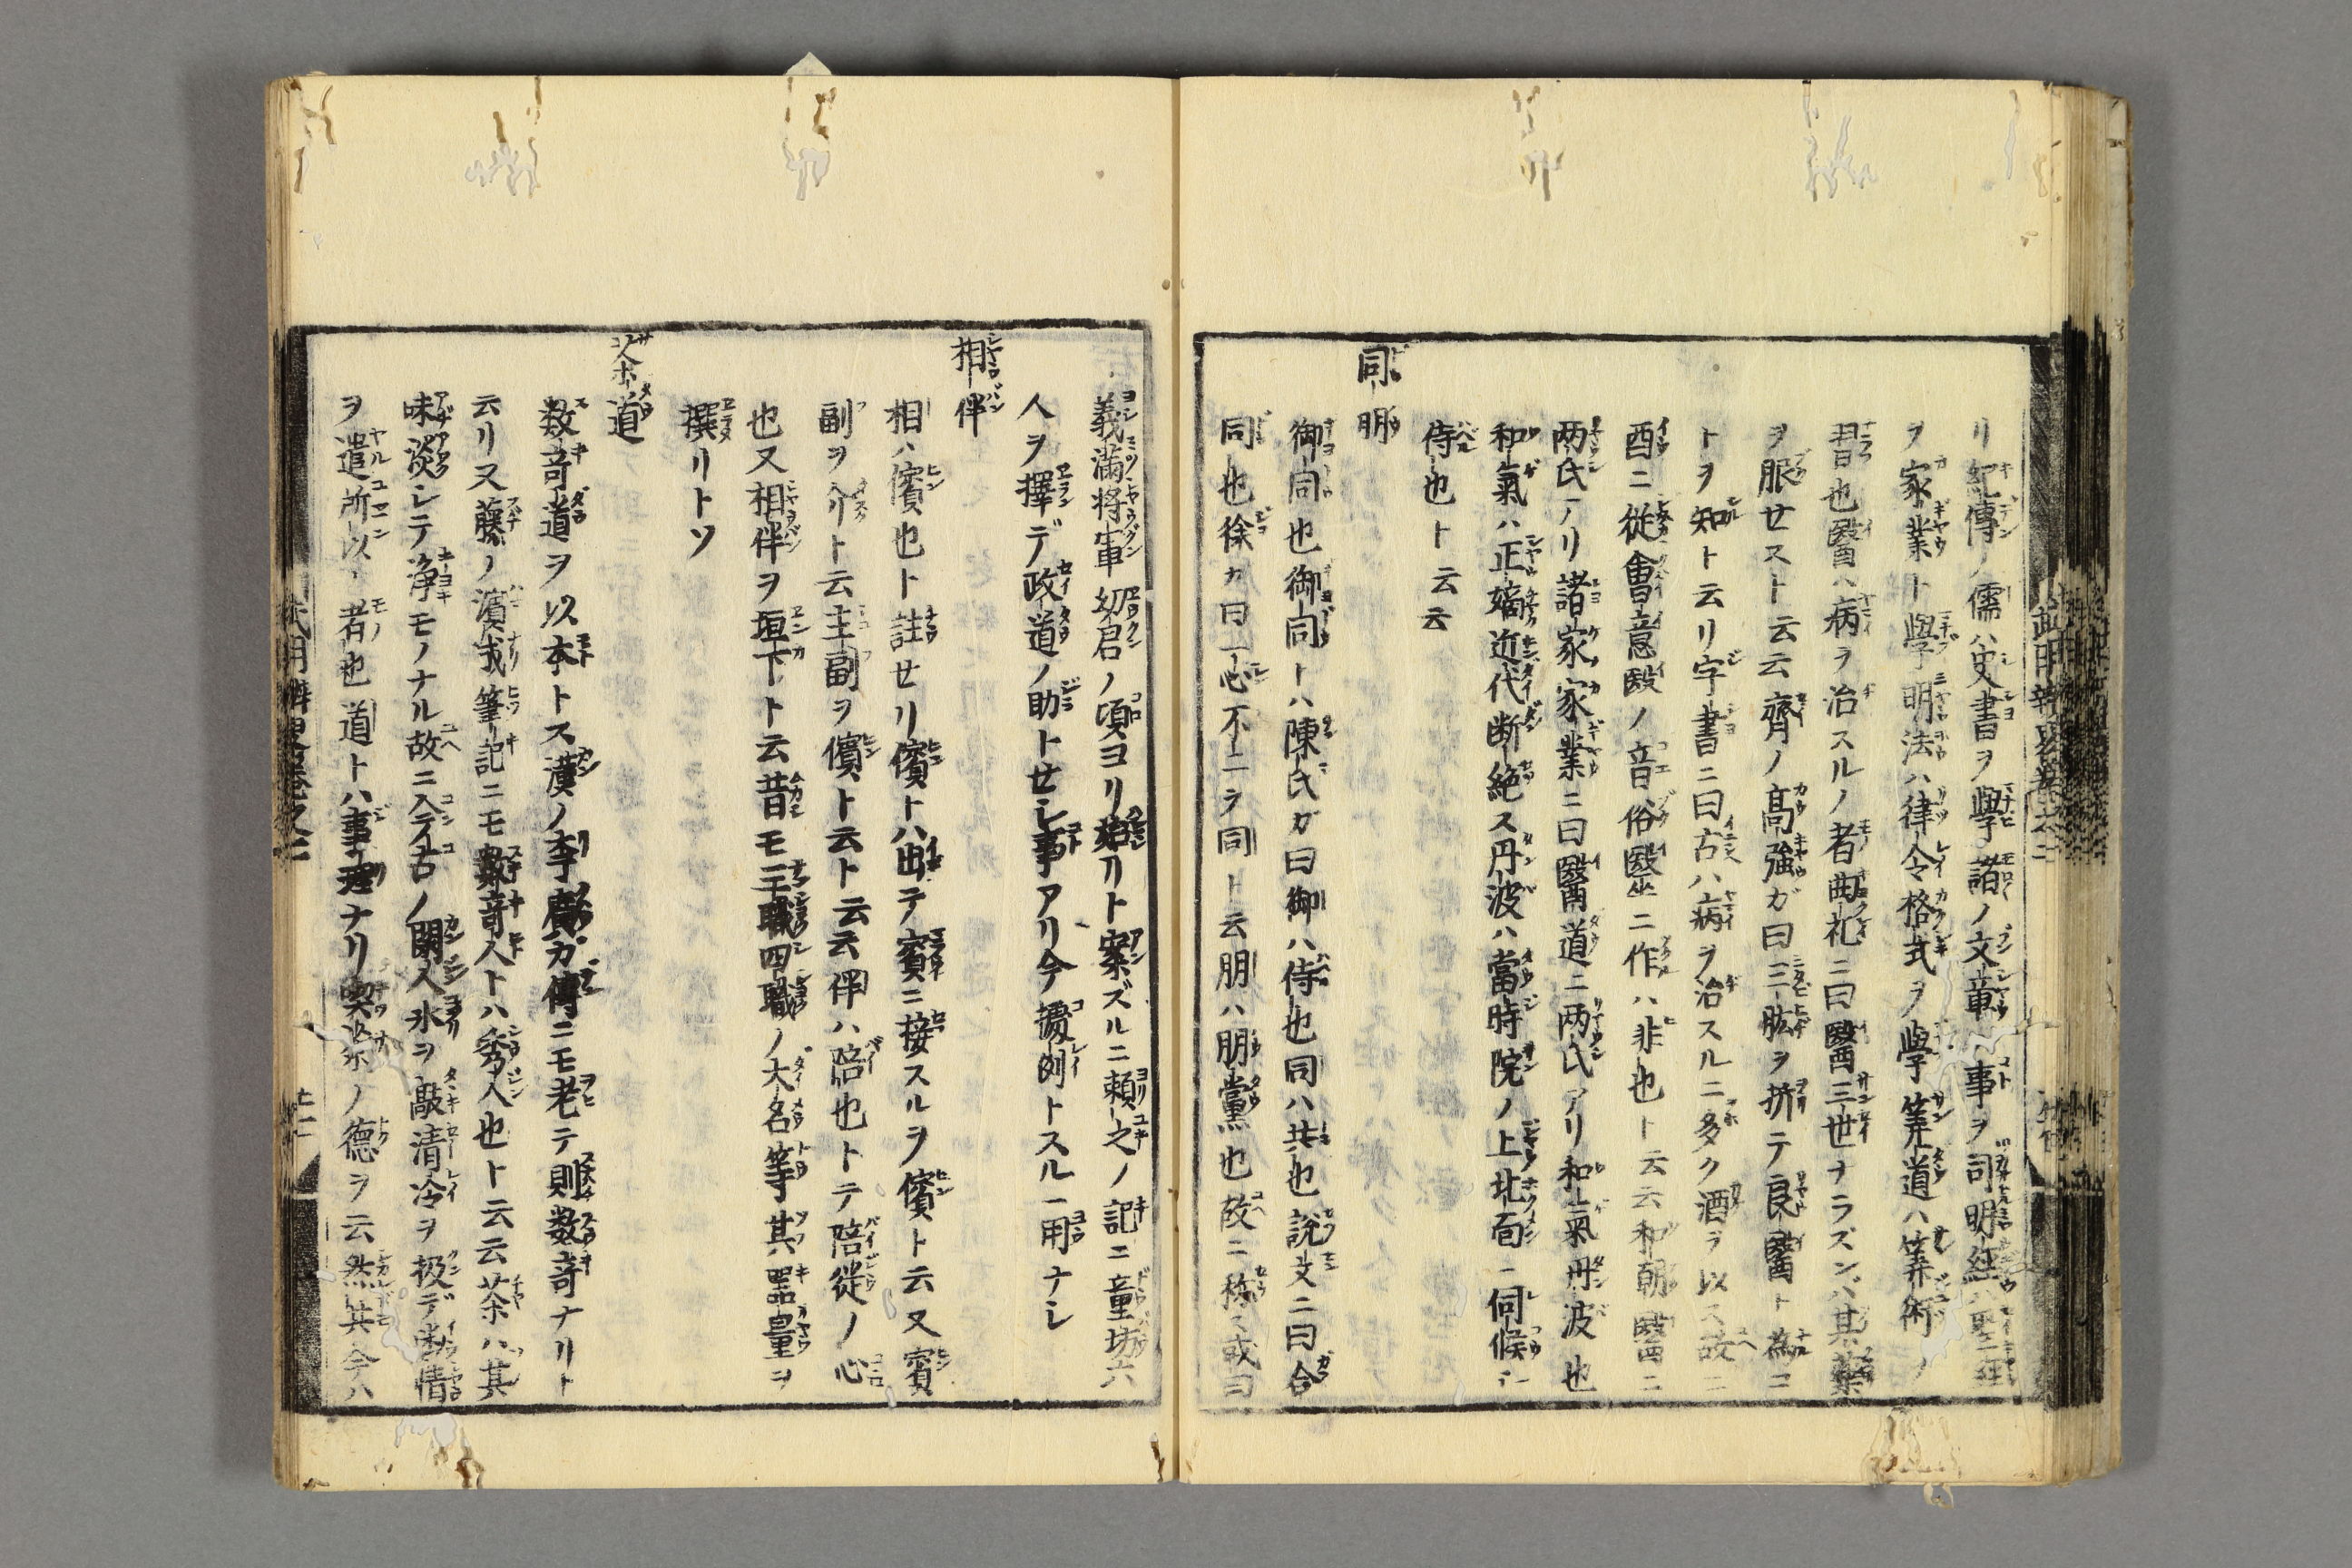 リ紀傳ノ儒ハ史書ヲ學諸ノ文章ノ事ヲ司明經ハ聖經
ヲ家業ト學明法ハ律令格式ヲ學筭道ハ筭術ノ
習也醫ハ病ヲ治スルノ者曲礼ニ曰醫三世ナラズンバ其藥
ヲ服せスト云云齊ノ高強ガ曰三肱ヲ折テ良醫ト為コ
トヲ知ト云リ字書ニ曰古ハ病ヲ治スルニ多ク酒ヲ以ス故ニ
酉ニ從會意醫ノ音俗毉ニ作ハ非也ト云云和朝醫ニ
両氏アリ諸家家業ニ曰醫道ニ两氏アリ和氣丹波也
和氣ハ正嫡近代断絶ス丹波ハ當時院ノ上北面ニ伺候シ
侍也ト云云
同朋
御同也御同トハ陳氏ガ曰御ハ侍也同ハ共也說文ニ曰合
同也徐カ曰一心不二ヲ同ト云朋ハ朋黨也故ニ称ス或曰
義滿将軍幼君ノ頃ヨリ始リト案ズルニ頼之ノ記ニ童坊六
人ヲ擇デ政道ノ助トせシ事アリ今援例トスル一用ナレ
相伴
相ハ儐也ト註せリ儐トハ出テ賓ニ接スルヲ儐ト云又賓
副ヲ介ト云主副ヲ儐ト云ト云云伴ハ陪也トテ陪従ノ心
也又相伴ヲ垣下ト云昔モ三職四職ノ大名等其器量ヲ
撰リトソ
茶道
数竒道ヲ以本トス漢ノ李廣カ傳ニモ老テ則数竒ナリト
云リ又藤ノ濱成筆記ニモ數竒人トハ秀人也ト云云茶ハ其
味淡シテ浄モノナル故ニ今古ノ閑人氷ヲ敲清冷ヲ扱デ幽情
ヲ遣所以ノ者也道トハ事理ナリ喫茶ノ德ヲ云然共今ハ